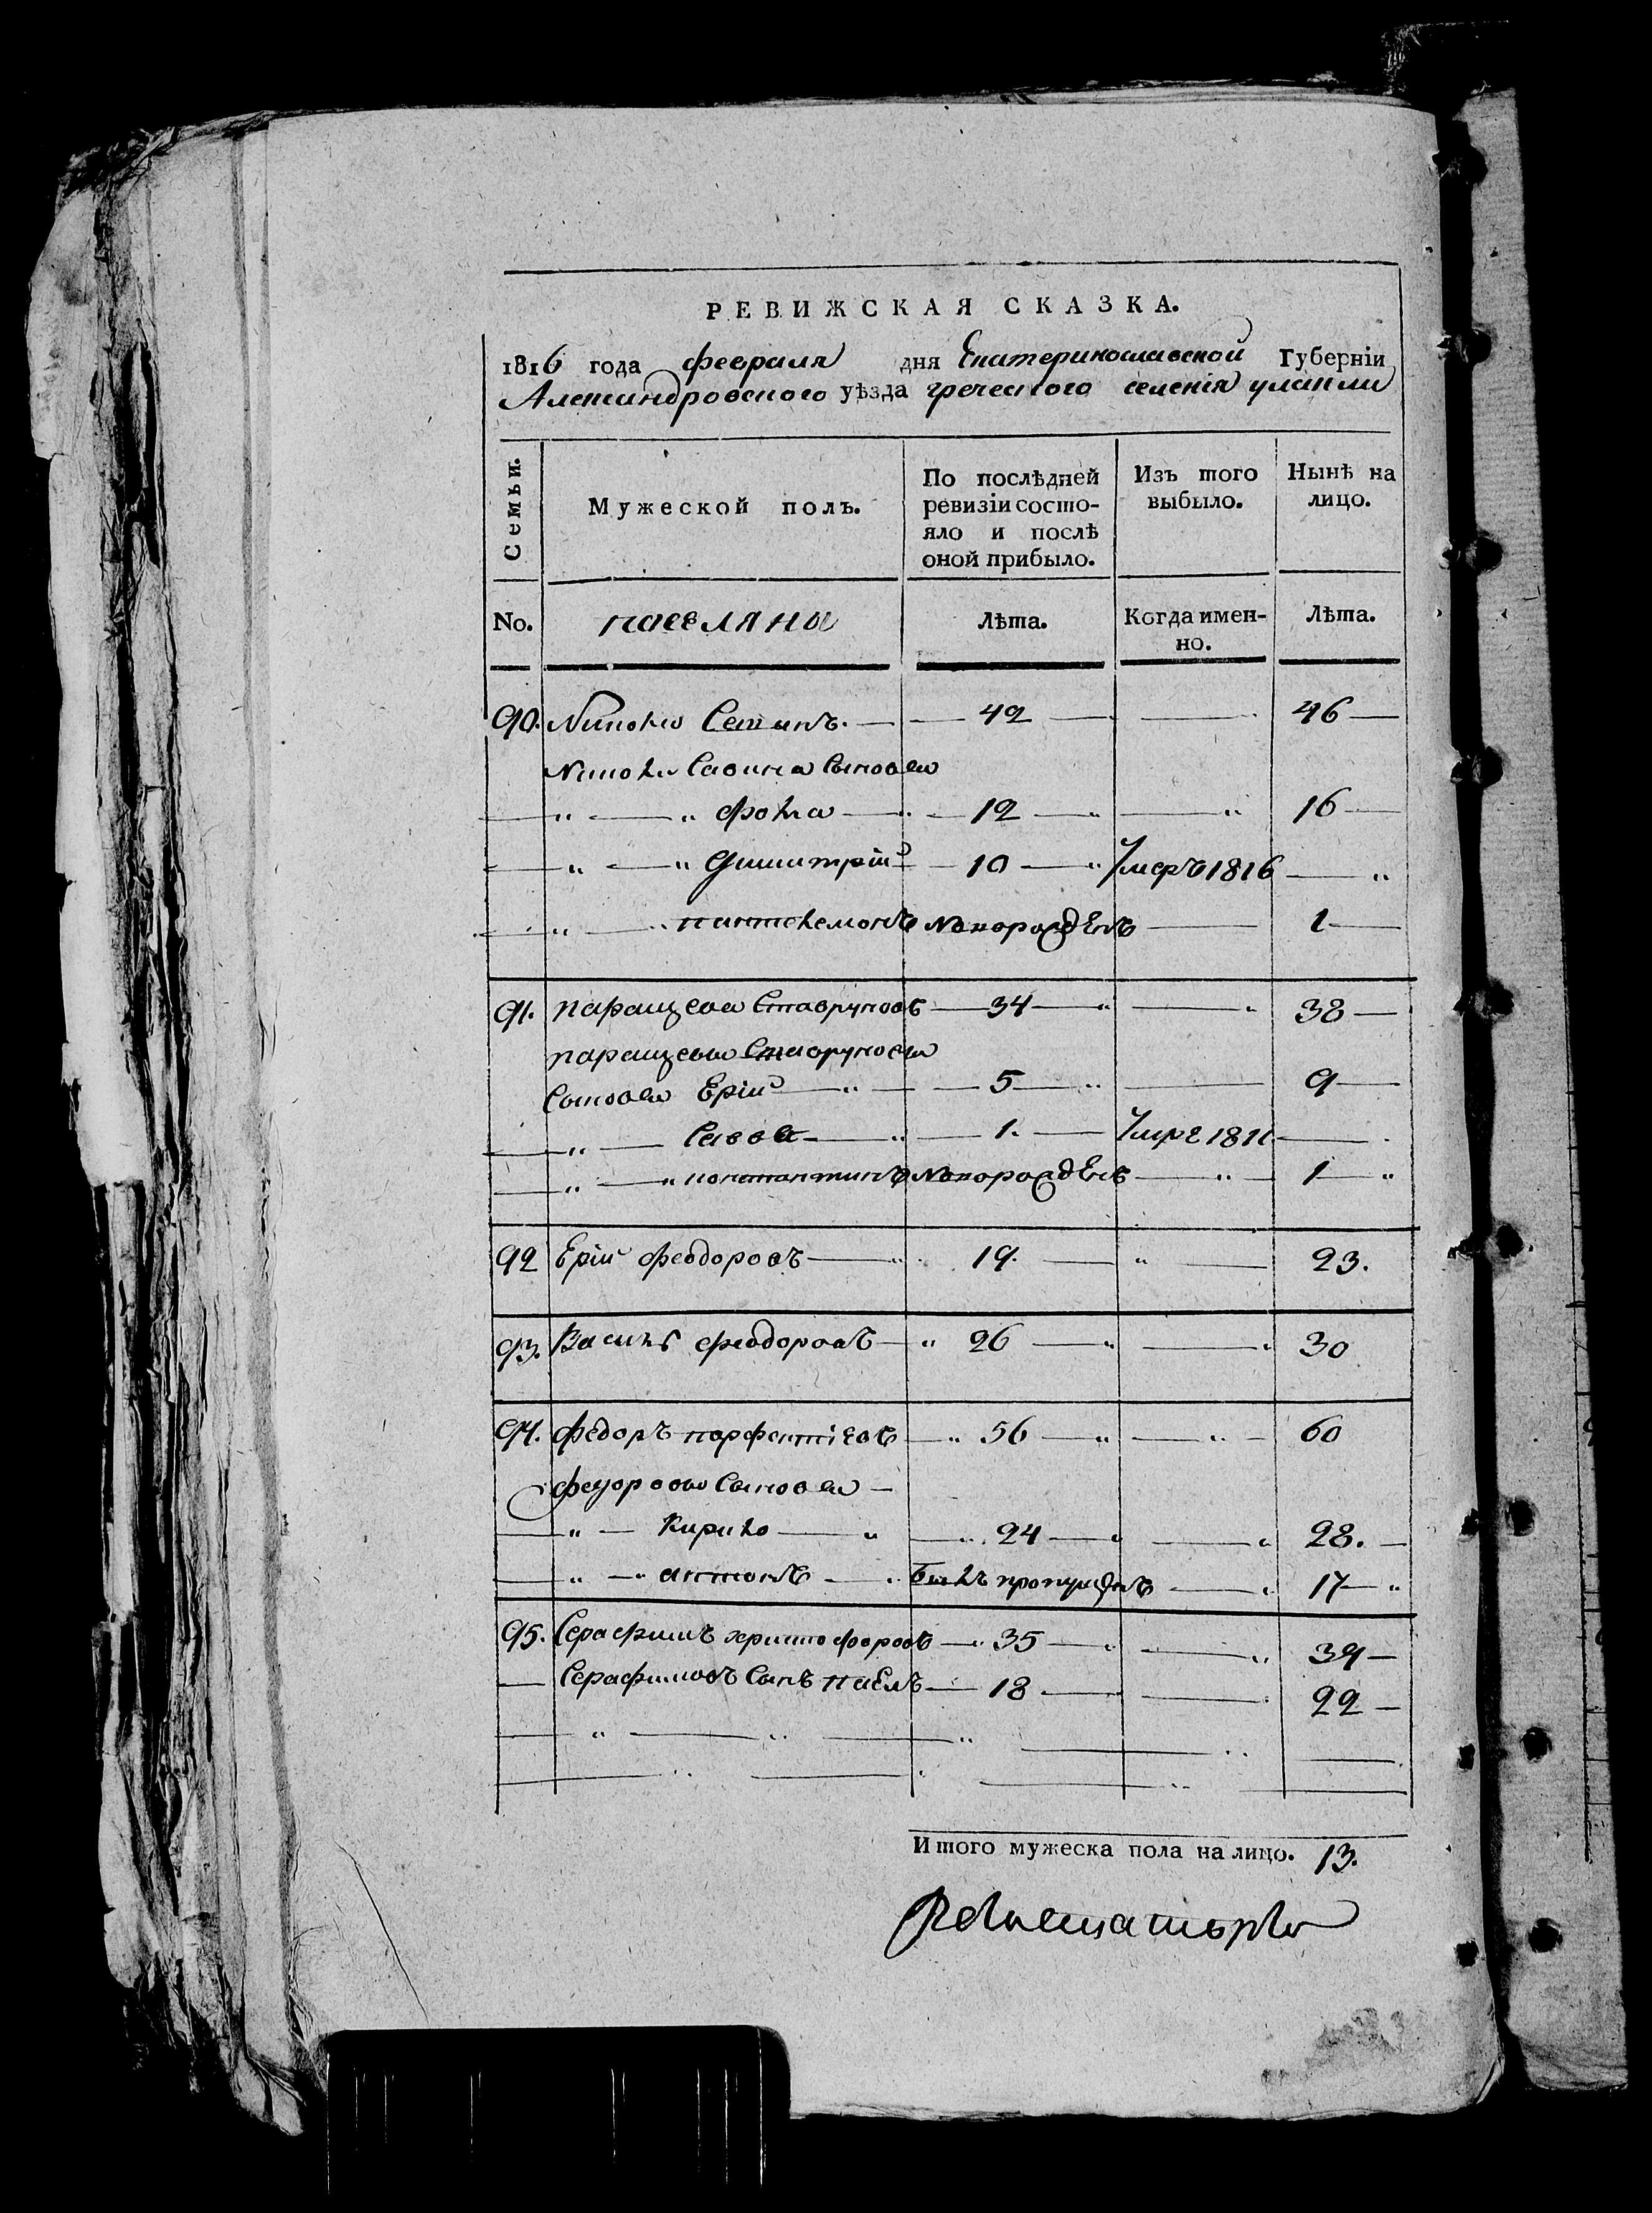 РЕВИЖСКАЯ СКАЗКА.
1816 года февраля дня Екатеринославской Губерніи
Александровского уѣзда греческого селенія улакли
Семьи.
Мужеской полъ.
По послѣдней ревизіи состо-
яло и послѣ
оной прибыло.
Изъ того
выбыло.
Нынѣ на
лицо.
No.
поселяны
Лѣта.
Когда имен-
но.
Лѣта.
90. 42 46
сыновья
" " фома 12 16
" " Димитрій 10 умеръ 1816 "
" " пантелемонъ новорожденъ 1
91. паращева Ставруновъ 34 38
паращевы Ставрунова
сыновья Ерій 5 9
" Савва 1. умре 1811
" " константинъ новорожденъ 1
92 Ерій феодоровъ 19. 23.
93. Василь феодоровъ 26 30
94. федоръ парфентіевъ 56 60
федоровы сыновья
" Кирило 24 28.
" антонъ былъ пропущенъ 17
95. Серафимъ христофоровъ 35 39
Серафимовъ сынъ павелъ 18 22
Итого мужеска пола на лицо. 13.